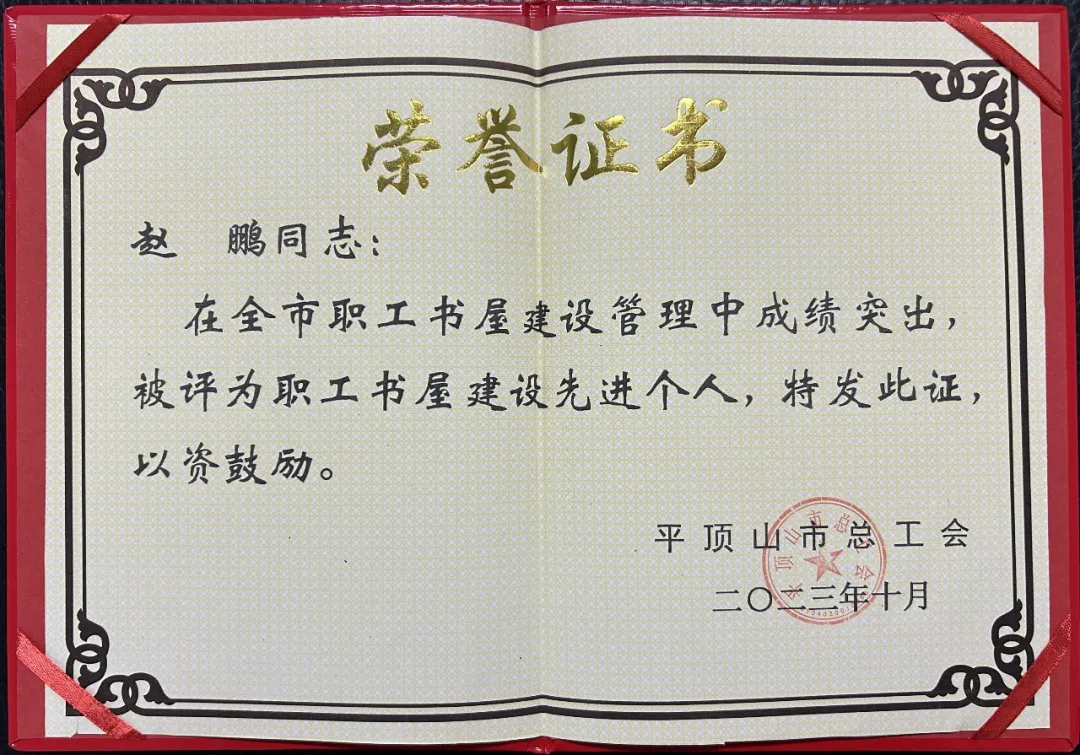 荣誉证书
赵 鹏同志：
在全市职工书屋建设管理中成绩突出，
被评为职工书屋建设先进个人，特发此证，
以资鼓励。
平顶山市总工会
二〇二三年十月
平顶山市总工会